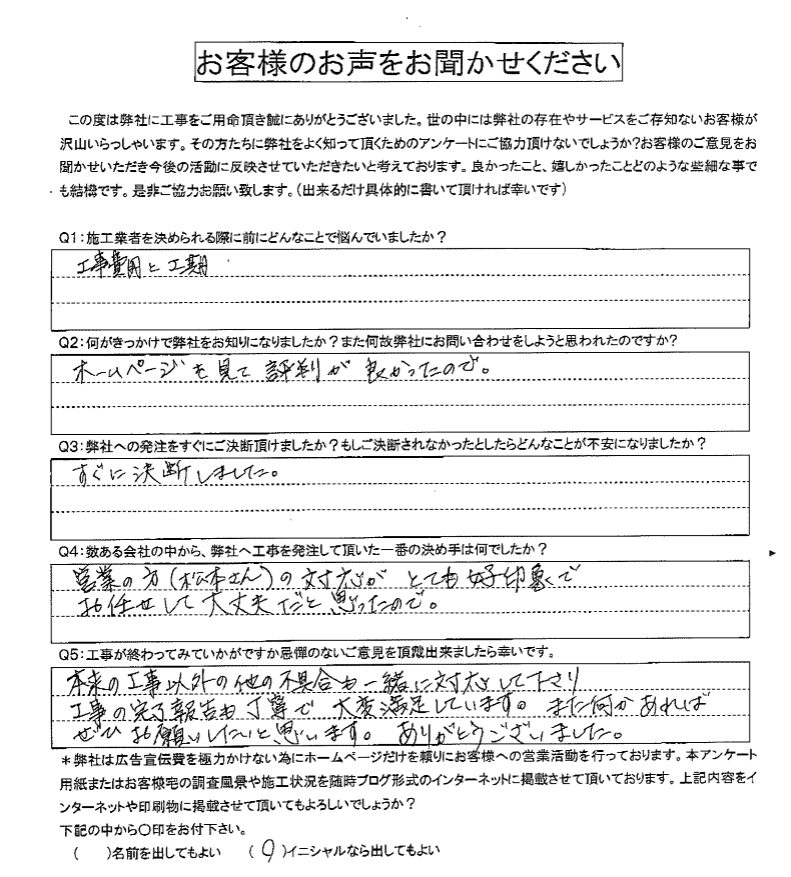 お客様のお声をお聞かせください
この度は弊社に工事をご用命頂き誠にありがとうございました。世の中には弊社の存在やサービスをご存知ないお客様が
沢山いらっしゃいます。その方たちに弊社をよく知って頂くためのアンケートにご協力頂けないでしょうか?お客様のご意見をお
聞かせいただき今後の活動に反映させていただきたいと考えております。良かったこと、嬉しかったことどのような些細な事で
も結構です。是非ご協力お願い致します。(出来るだけ具体的に書いて頂ければ幸いです)
Q1:施工業者を決められる際に前にどんなことで悩んでいましたか?
工事費用と工期
Q2:何がきっかけで弊社をお知りになりましたか?また何故弊社にお問い合わせをしようと思われたのですか?
ホームページを見て評判が良かったので。
Q3:弊社への発注をすぐにご決断頂けましたか?もしご決断されなかったとしたらどんなことが不安になりましたか?
すぐに決断しました。
Q4:数ある会社の中から、弊社へ工事を発注して頂いた一番の決め手は何でしたか?
営業の方(松本さん)の対応がとても好印象で
お任せして大丈夫だと思ったので。
Q5:工事が終わってみていかがですか忌憚のないご意見を頂戴出来ましたら幸いです。
本来の工事以外の他の不具合も一緒に対応して下さり
工事の完了報告も丁寧で大変満足しています。また何かあれば
ぜひお願いしたいと思います。ありがとうございました。
*弊社は広告宣伝費を極力かけない為にホームページだけを頼りにお客様への営業活動を行っております。本アンケート
用紙またはお客様宅の調査風景や施工状況を随時ブログ形式のインターネットに掲載させて頂いております。上記内容をイ
ンターネットや印刷物に掲載させて頂いてもよろしいでしょうか?
下記の中から〇印をお付下さい。
( )名前を出してもよい (〇)イニシャルなら出してもよい